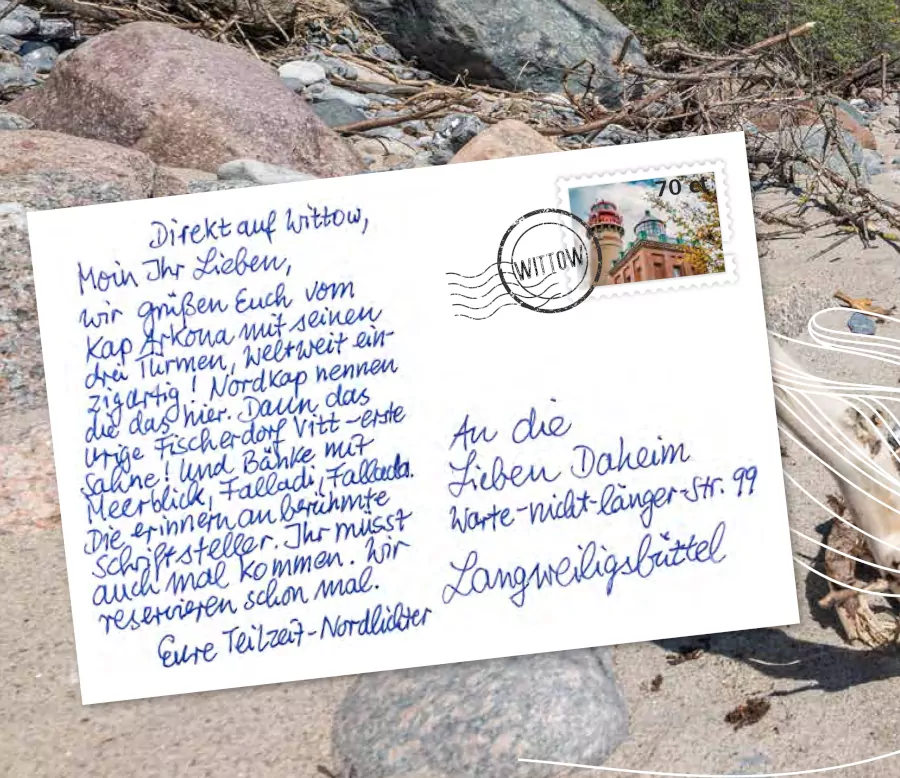 Direkt auf Wittow,
Moin Ihr Lieben,
wir grüßen Euch vom
Kap Arkona mit seinen
drei Türmen, Weltweit ein-
zigartig! Nordkap nennen
die das hier. Dann das
urige Fischerdorf Vitt – erste
Sahne! Und Bänke mit
Meerblick, Falladi, Fallada.
Die erinnern an berühmte
Schriftsteller. Ihr müsst
auch mal kommen. Wir
reservieren schon mal.
Eure Teilzeit-Nordlichter
70 ct
WITTOW
An die
Lieben Daheim
Warte-nicht-länger-Str. 99
Langweiligsbüttel